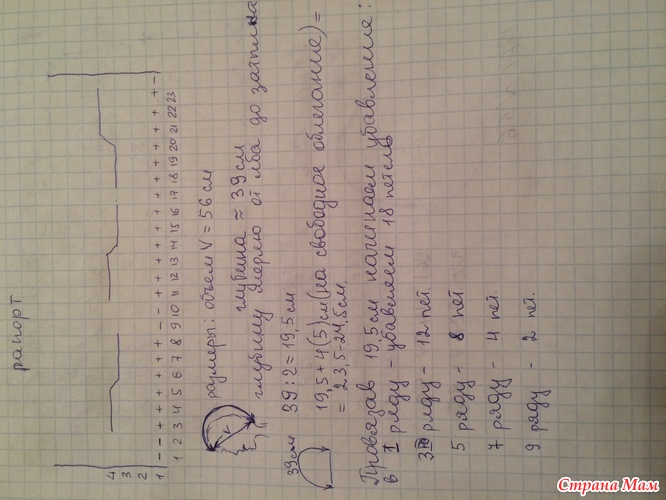 рапорт
4
3
2
1 - - + + + + + + - - + + + + + + + + + + + + -
1 2 3 4 5 6 7 8 9 10 11 12 13 14 15 16 17 18 19 20 21 22 23
размеры: объем V = 56 см
глубина ≈ 39 см
глубину мерею от лба до затылка
39 см
39 : 2 = 19,5 см
19,5 + 4 (5) см (на свободное облегание) =
= 23,5 - 24,5 см.
Провязав 19,5 см начинаем убавление:
в I ряду - убавляем 18 петель
3 ряду - 12 пет.
5 ряду - 8 пет.
7 ряду - 4 пет.
9 ряду - 2 пет.
Страна Мам